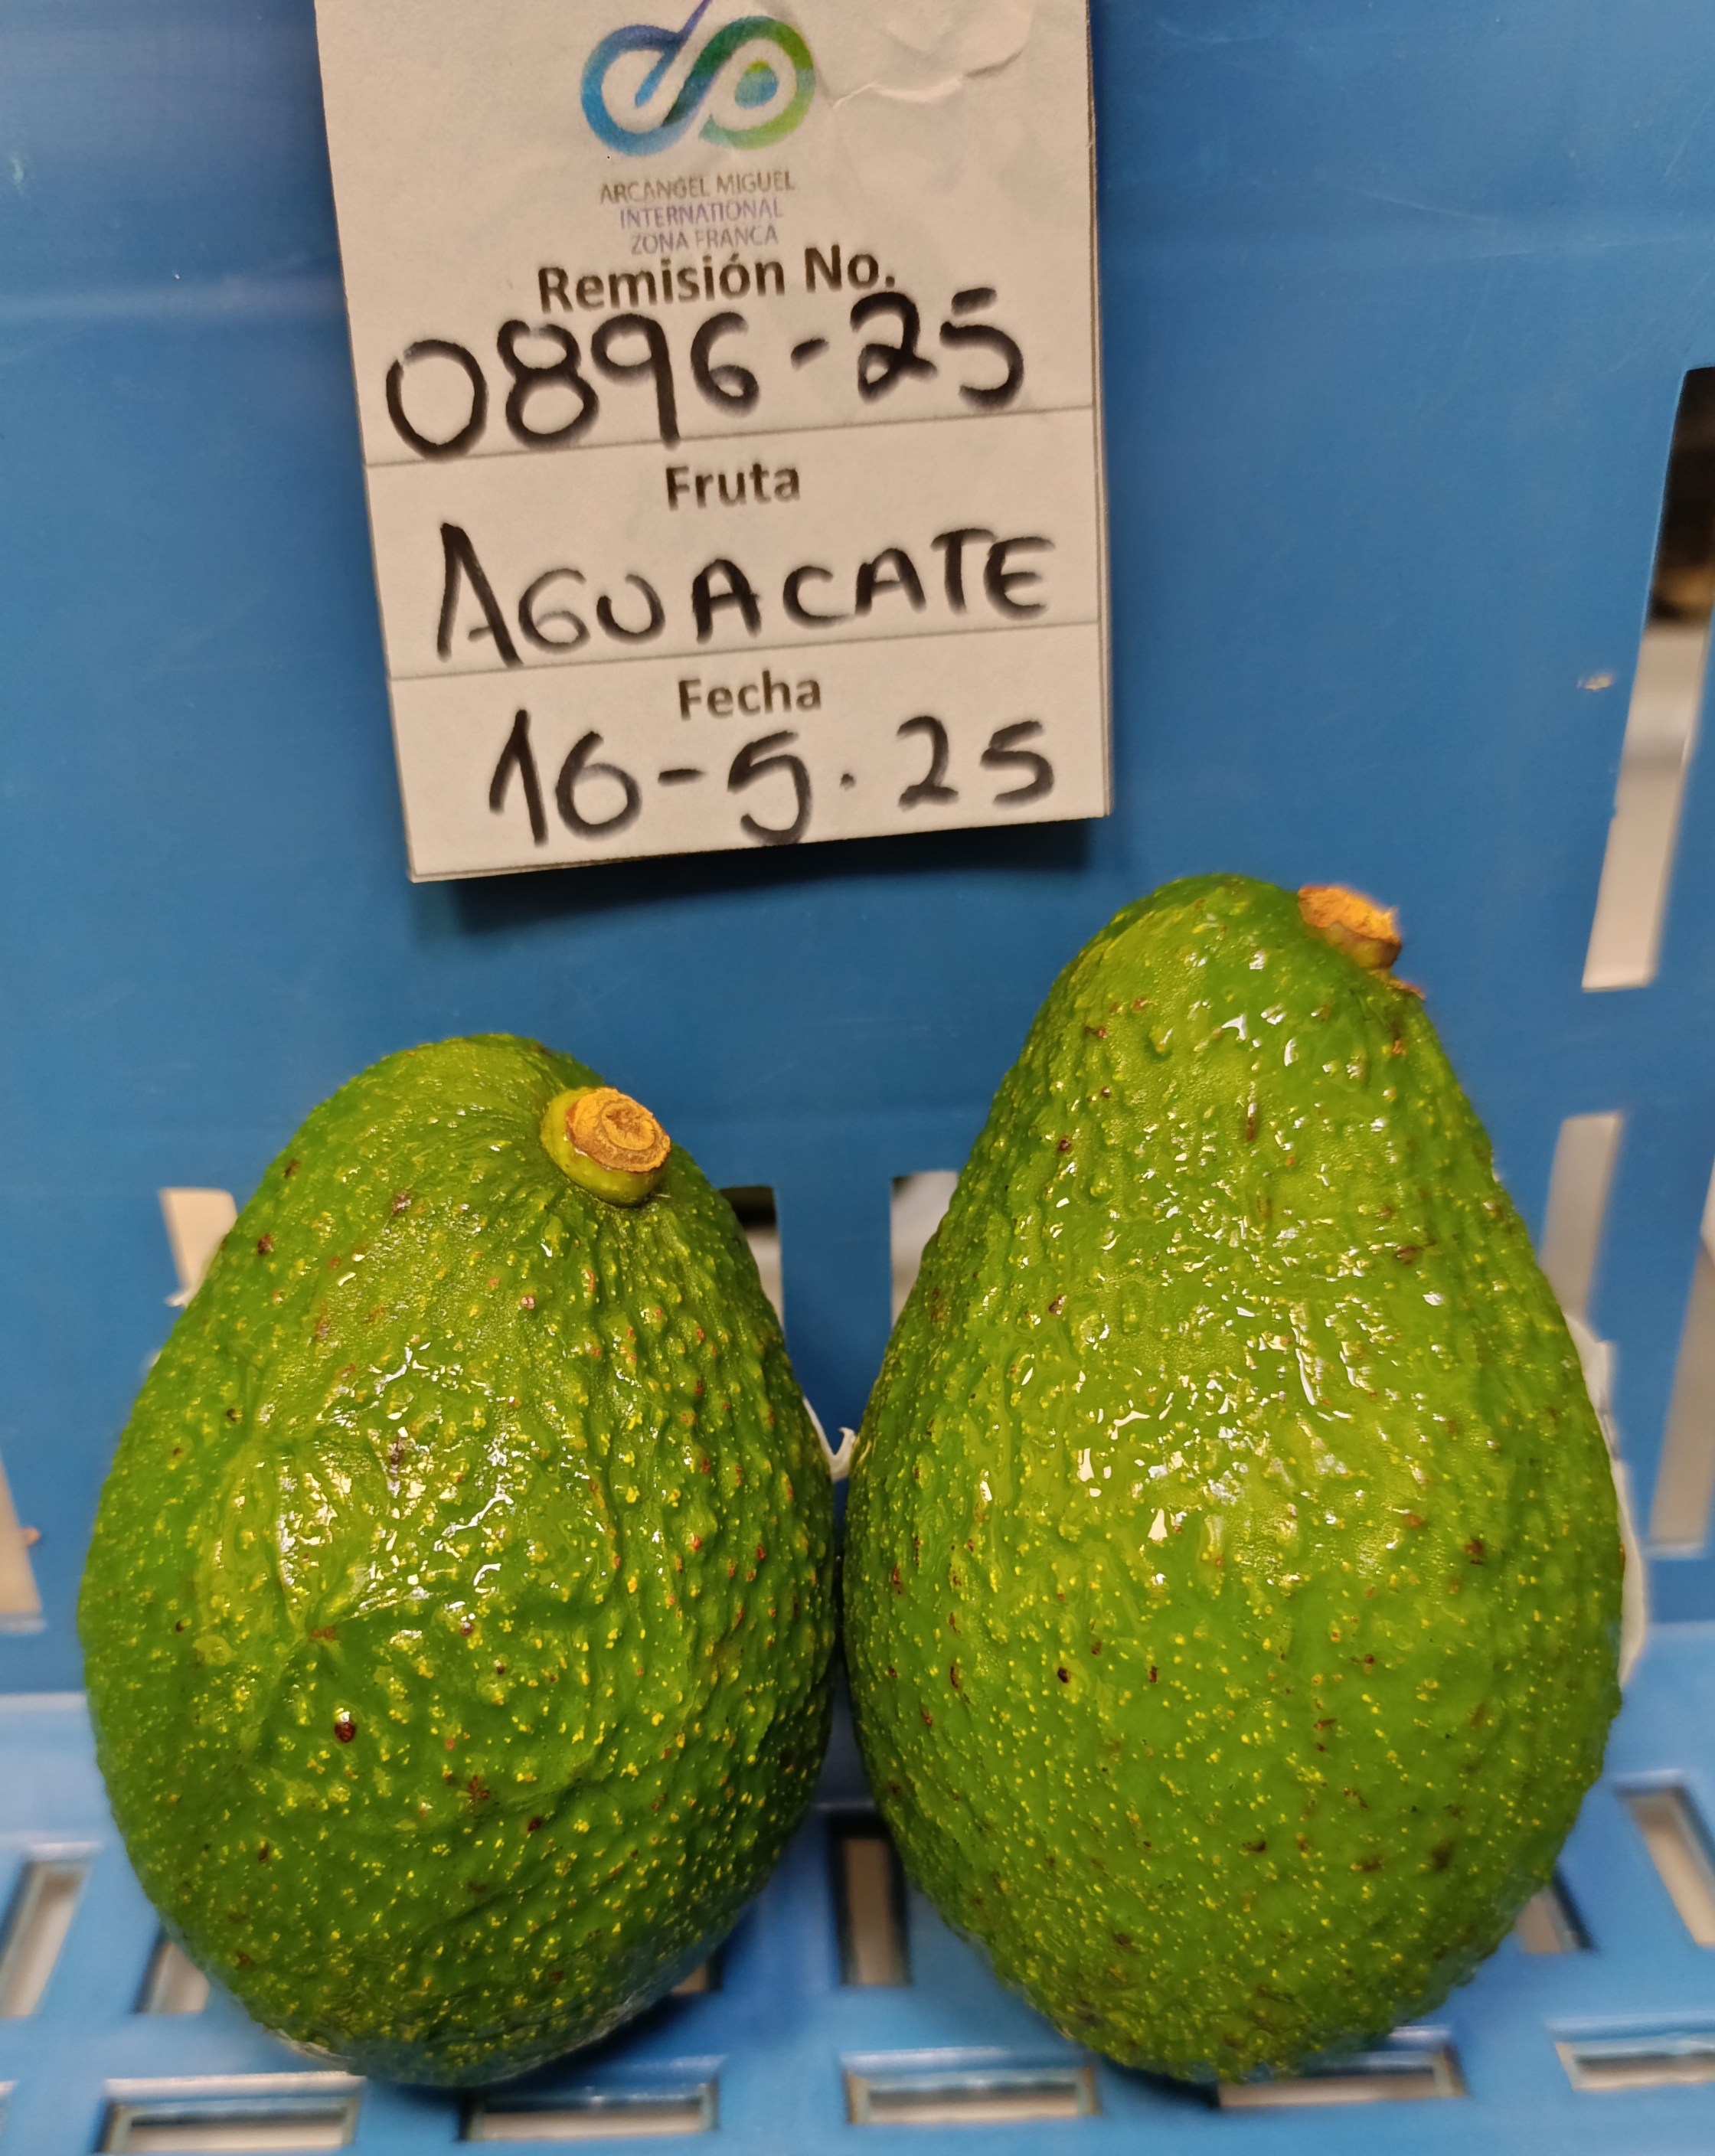 ARCANGEL MIGUEL
INTERNATIONAL
ZONA FRANCA
Remisión No.
0896-25
Fruta
AGUACATE
Fecha
16-5.25